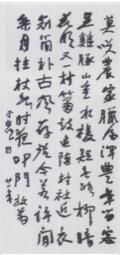 莫笑農家臘酒渾豐年留客
足雞豚山重水複疑無路柳暗
花明又一村簫鼓追隨春社近衣
冠簡朴古風存從今若許閒
乘月拄杖無時夜叩門